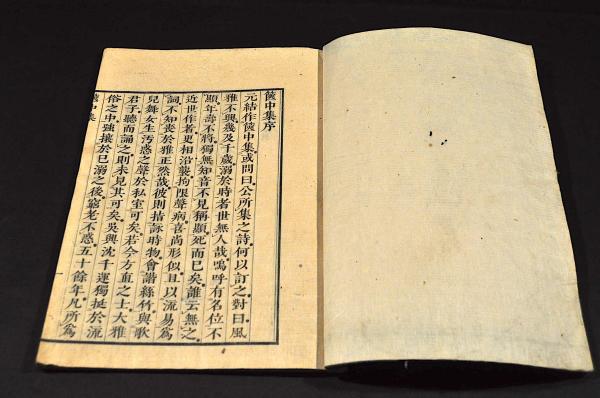 篋中集序
元結作篋中集或問曰公所集之詩何以訂之對曰風
雅不興幾及千歲溺於時者世無人哉嗚呼有名位不
顯年壽不將獨無知音不見稱顯死而已矣誰云無之
近世作者更相沿襲拘限聲病喜尚形似且以流易為
詞不知喪於雅正然哉彼則指詠時物會諧絲竹與歌
兒舞女生污惑之聲於私室可矣若今方直之士大雅
君子聽而誦之則未見其可矣吳興沈千運獨挺於流
俗之中強攘於已溺之後窮老不惑五十餘年凡所為
篋中集